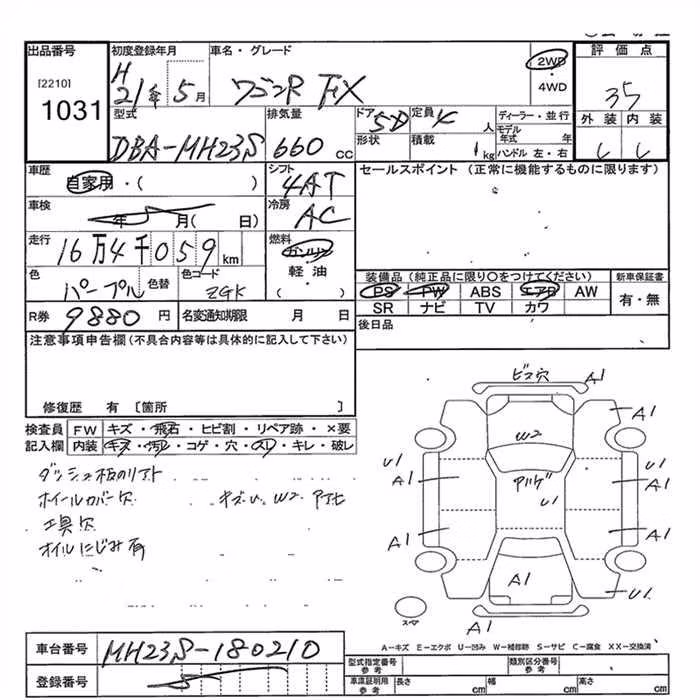 出品番号
[2210]
1031
初度登録年月
H
21年 5月
車名・グレード
ワゴンR FX
2WD
・
4WD
評価点
35
外装 内装
型式
DBA-MH23S
排気量
660 cc
ドア
5D
形状
定員
4 人
積載
kg
ディーラー・並行
モデル年式 年
ハンドル 左・右
車歴
自家用・( )
シフト
4AT
セールスポイント (正常に機能するものに限ります)
車検
年 月( 日)
冷房
AC
走行
16万4千059 km
燃料
ガソリン
軽油
( )
色
パープル
色替
色コード
ZGK
装備品(純正品に限り○をつけてください)
PS PW ABS エアB AW
SR ナビ TV カワ
新車保証書
有・無
R券
9880 円
名変通知期限 月 日
後日品
注意事項申告欄(不具合内容等は具体的に記入して下さい)
修復歴 有 〔箇所 〕
検査員記入欄
FW キズ・飛石・ヒビ割・リペア跡・×要
内装 キズ・汚レ・コゲ・穴・スレ・キレ・破レ
ホイールカバー欠
工具欠
オイルにじみ有
ビス穴
A1
A1
W2
U1
A1
U1
A1
U1
A1
A1
A1
U1
A1
スペア
A-キズ E-エクボ U-凹み W-補修跡 S-サビ C-腐食 XX-交換済
車台番号
MH23S-180210
登録番号
型式指定番号
参考
類別区分番号
参考
車庫証明用
参考
長さ cm
幅 cm
高さ cm